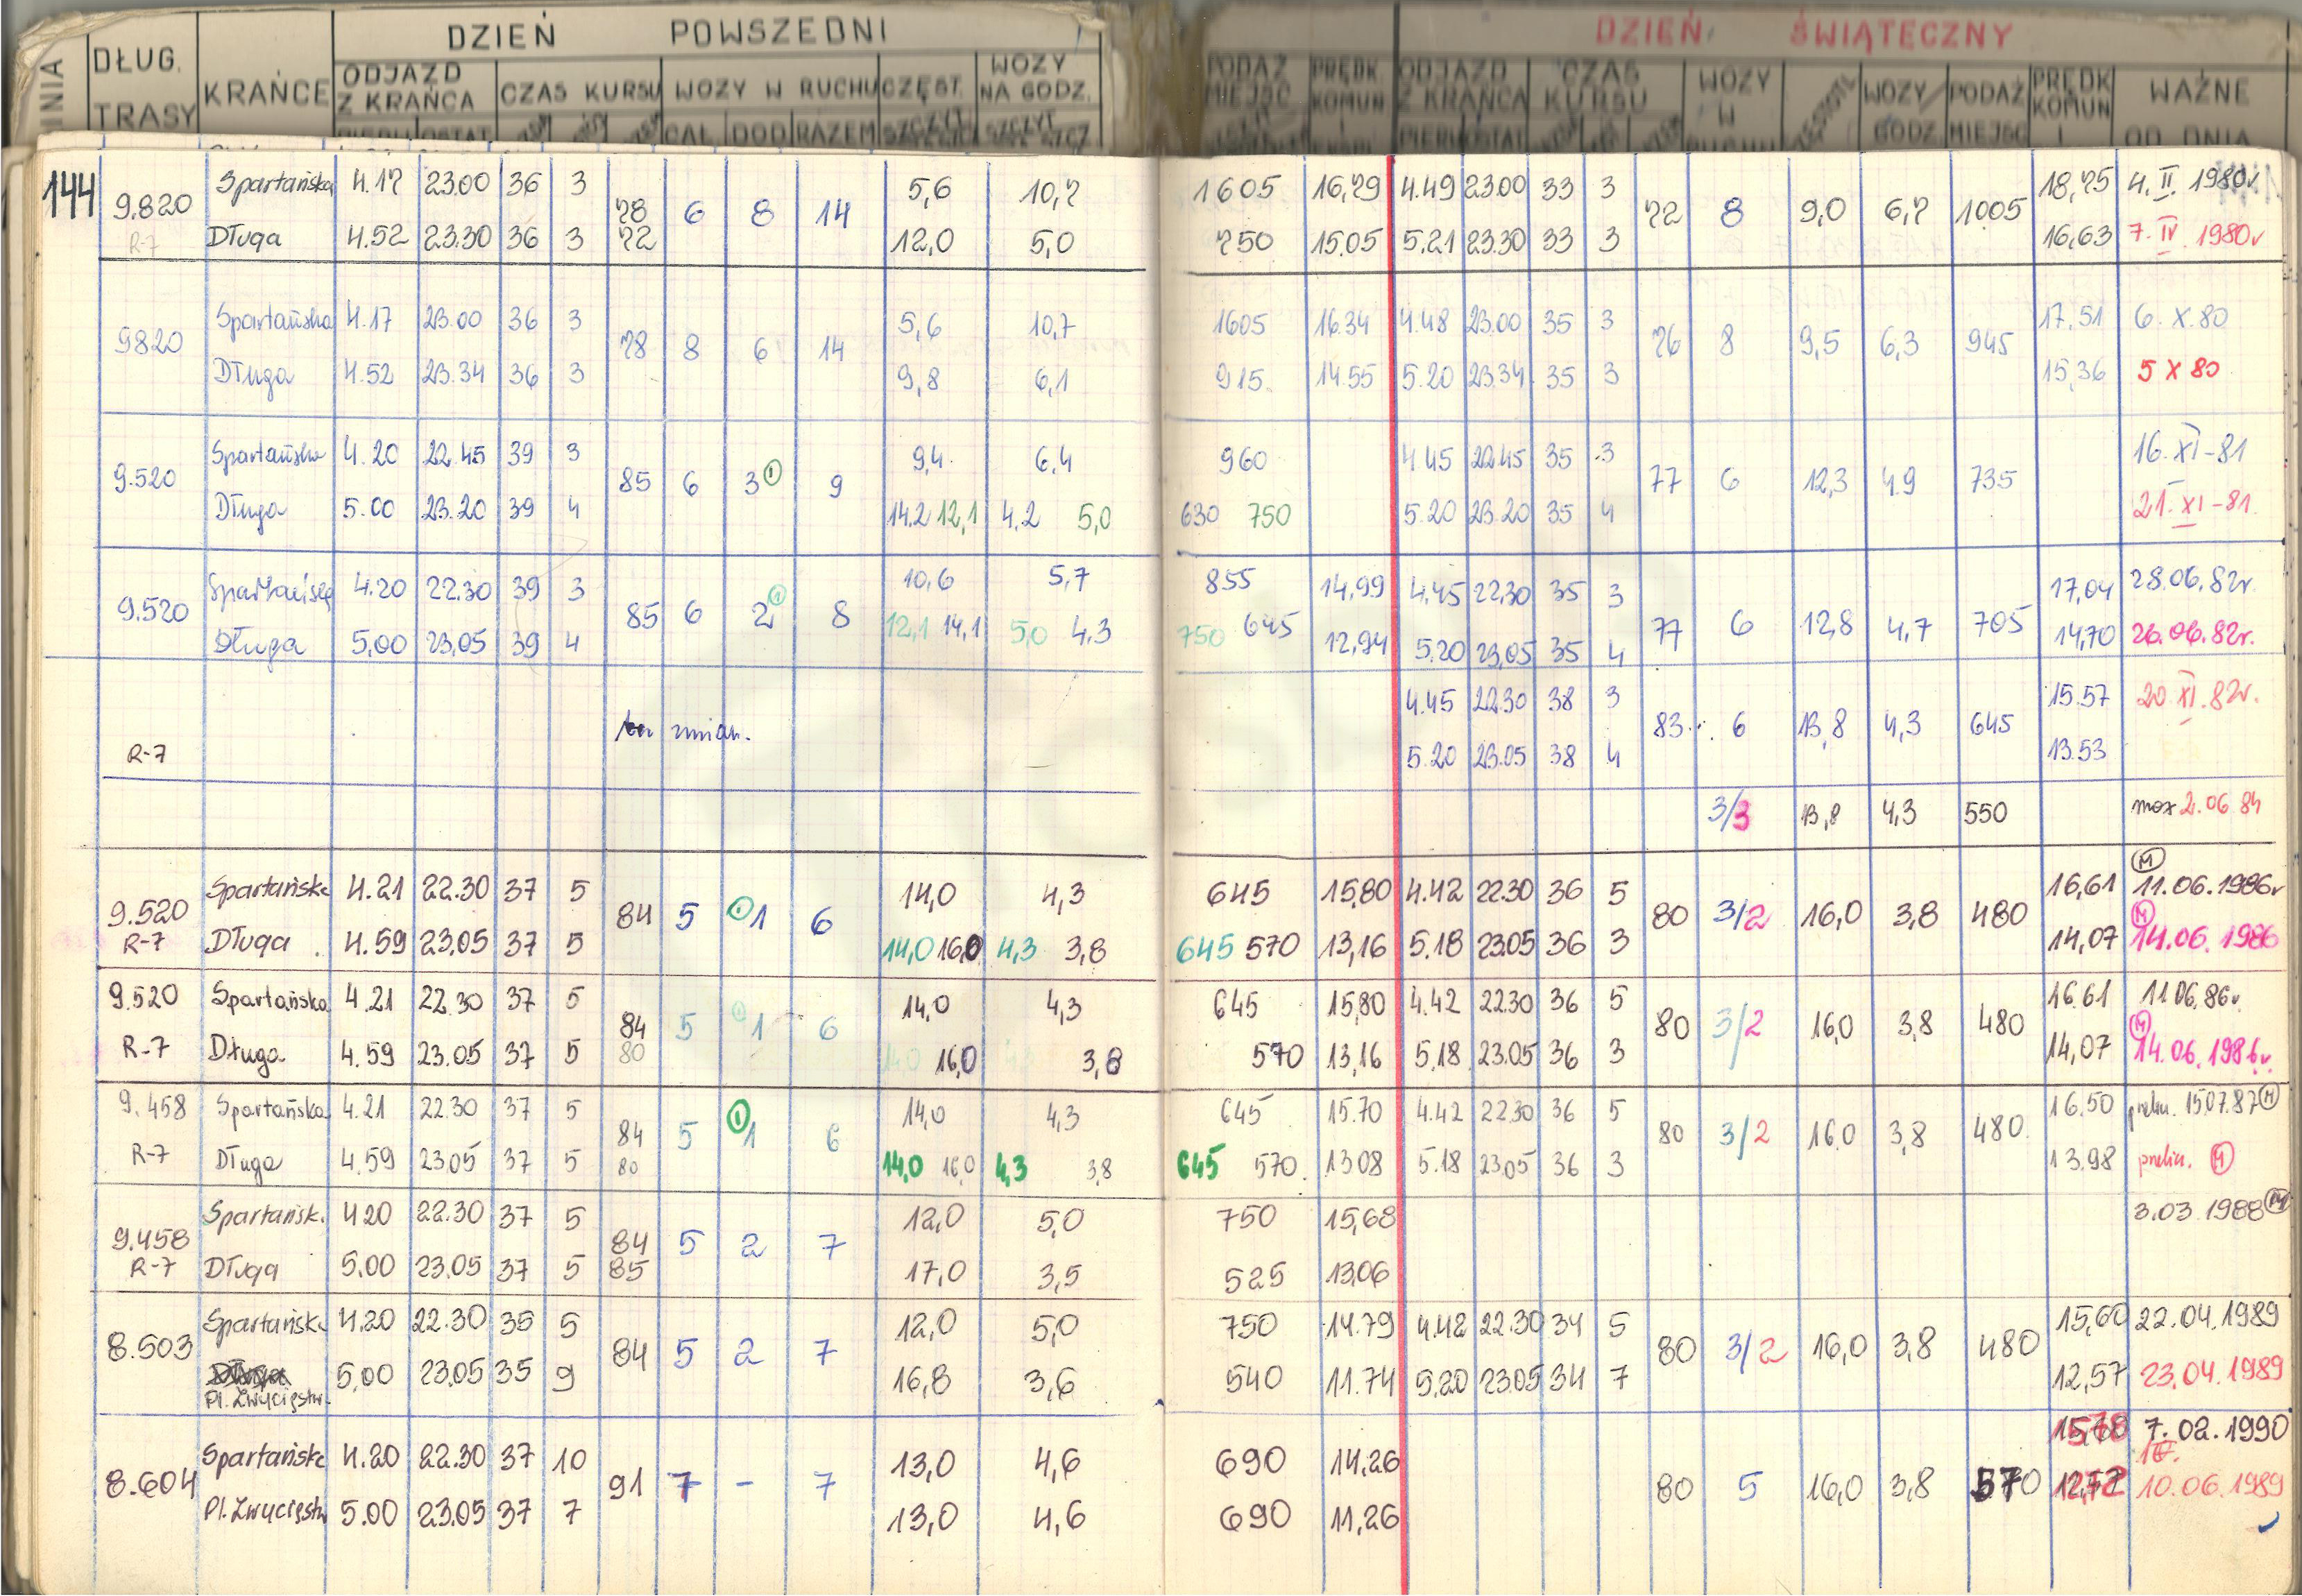 DZIEŃ POWSZEDNI DZIEŃ ŚWIĄTECZNY
DŁUG. TRASY KRAŃCE ODJAZD Z KRAŃCA CZAS KURSU WOZY W RUCHU CZĘST. WOZY NA GODZ. PODAŻ MIEJSC PRĘDK KOMUN ODJAZD Z KRAŃCA CZAS KURSU WOZY W WOZY GODZ. PODAŻ MIEJSC PRĘDK KOMUN WAŻNE OD DNIA
CAŁ DOD RAZEM SZCZYT
144 9.820 Spartańska 4.17 23.00 36 3 78 6 8 14 5,6 10,7 1605 16,79 4.49 23.00 33 3 72 8 9,0 6,7 1005 18,75 4. II. 1980r
R-7 Długa 4.52 23.30 36 3 72 12,0 5,0 750 15.05 5.21 23.30 33 3 16,63 7. IV. 1980r
9820 Spartańska 4.17 23.00 36 3 78 8 6 14 5,6 10,7 1605 16.34 4.48 23.00 35 3 76 8 9,5 6,3 945 17,51 6. X. 80
Długa 4.52 23.34 36 3 9,8 6,1 915 14.55 5.20 23.34 35 3 15,36 5 X 80
9.520 Spartańska 4.20 22.45 39 3 85 6 3 1 9 9,4 6,4 960 4.45 22.45 35 3 77 6 12,3 4.9 735 16. XI-81
Długa 5.00 23.20 39 4 14.2 12,1 4,2 5,0 630 750 5.20 23.20 35 4 21. XI-81.
9.520 Spartańska 4.20 22.30 39 3 85 6 2 1 8 10,6 5,7 855 14,99 4.45 22.30 35 3 77 6 12,8 4,7 705 17,04 28.06.82r.
Długa 5,00 23,05 39 4 12,1 14,1 5,0 4.3 750 645 12,94 5.20 23,05 35 4 14,70 26.06.82r.
bez zmian. 4.45 22.30 38 3 83 6 13,8 4,3 645 15.57 20 XI. 82r.
R-7 5.20 23.05 38 4 13.53
3/3 13,8 4,3 550 2.06 84
9.520 Spartańska 4.21 22.30 37 5 84 5 1 1 6 14,0 4,3 645 15,80 4.42 22.30 36 5 80 3/2 16,0 3,8 480 16,61 M 11.06.1986r
R-7 Długa 4.59 23,05 37 5 14,0 16,0 4,3 3,8 645 570 13,16 5.18 23.05 36 3 14,07 M 14.06.1986
9.520 Spartańska 4.21 22.30 37 5 84 5 1 1 6 14,0 4,3 645 15,80 4.42 22.30 36 5 80 3/2 16,0 3,8 480 16.61 11.06.86r.
R-7 Długa 4.59 23.05 37 5 80 14,0 16,0 4,3 3,8 570 13,16 5.18 23.05 36 3 14,07 M 14.06.1986r.
9.458 Spartańska 4.21 22.30 37 5 84 5 1 1 6 14,0 4,3 645 15.70 4.42 22.30 36 5 80 3/2 16.0 3,8 480 16.50 15.07.87 M
R-7 Długa 4.59 23.05 37 5 80 14,0 16,0 4,3 3,8 645 570 13.08 5.18 23.05 36 3 13.98 M
9.458 Spartańsk. 4.20 22.30 37 5 84 5 2 7 12,0 5,0 750 15,68 3.03.1988 M
R-7 Długa 5,00 23.05 37 5 85 17,0 3,5 525 13,06
8.503 Spartańska 4.20 22.30 35 5 84 5 2 7 12,0 5,0 750 14.79 4.42 22.30 34 5 80 3/2 16,0 3,8 480 15,60 22.04.1989
Pl. Zwycięstw. 5,00 23.05 35 9 16,8 3,6 540 11.74 5,20 23.05 34 7 12,57 23.04.1989
8.604 Spartańska 4.20 22.30 37 10 91 7 - 7 13,0 4,6 690 14.26 80 5 16,0 3,8 570 15,78 7.02.1990
Pl. Zwycięstw 5.00 23.05 37 7 13,0 4,6 690 11,26 12,72 10.06.1989